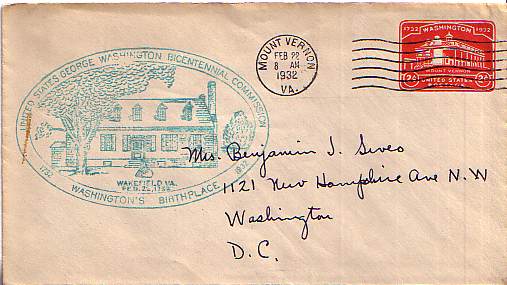 UNITED STATES GEORGE WASHINGTON BICENTENNIAL COMMISSION
1732 1932
WAKEFIELD, VA.
FEB. 22, 1732
WASHINGTON'S BIRTHPLACE
MOUNT VERNON
FEB 22
8 AM
1932
VA.
1732 WASHINGTON 1932
MOUNT VERNON
2c UNITED STATES 2c
POSTAGE
Mrs. Benjamin J.
1121 New Hampshire Ave N.W
Washington
D.C.